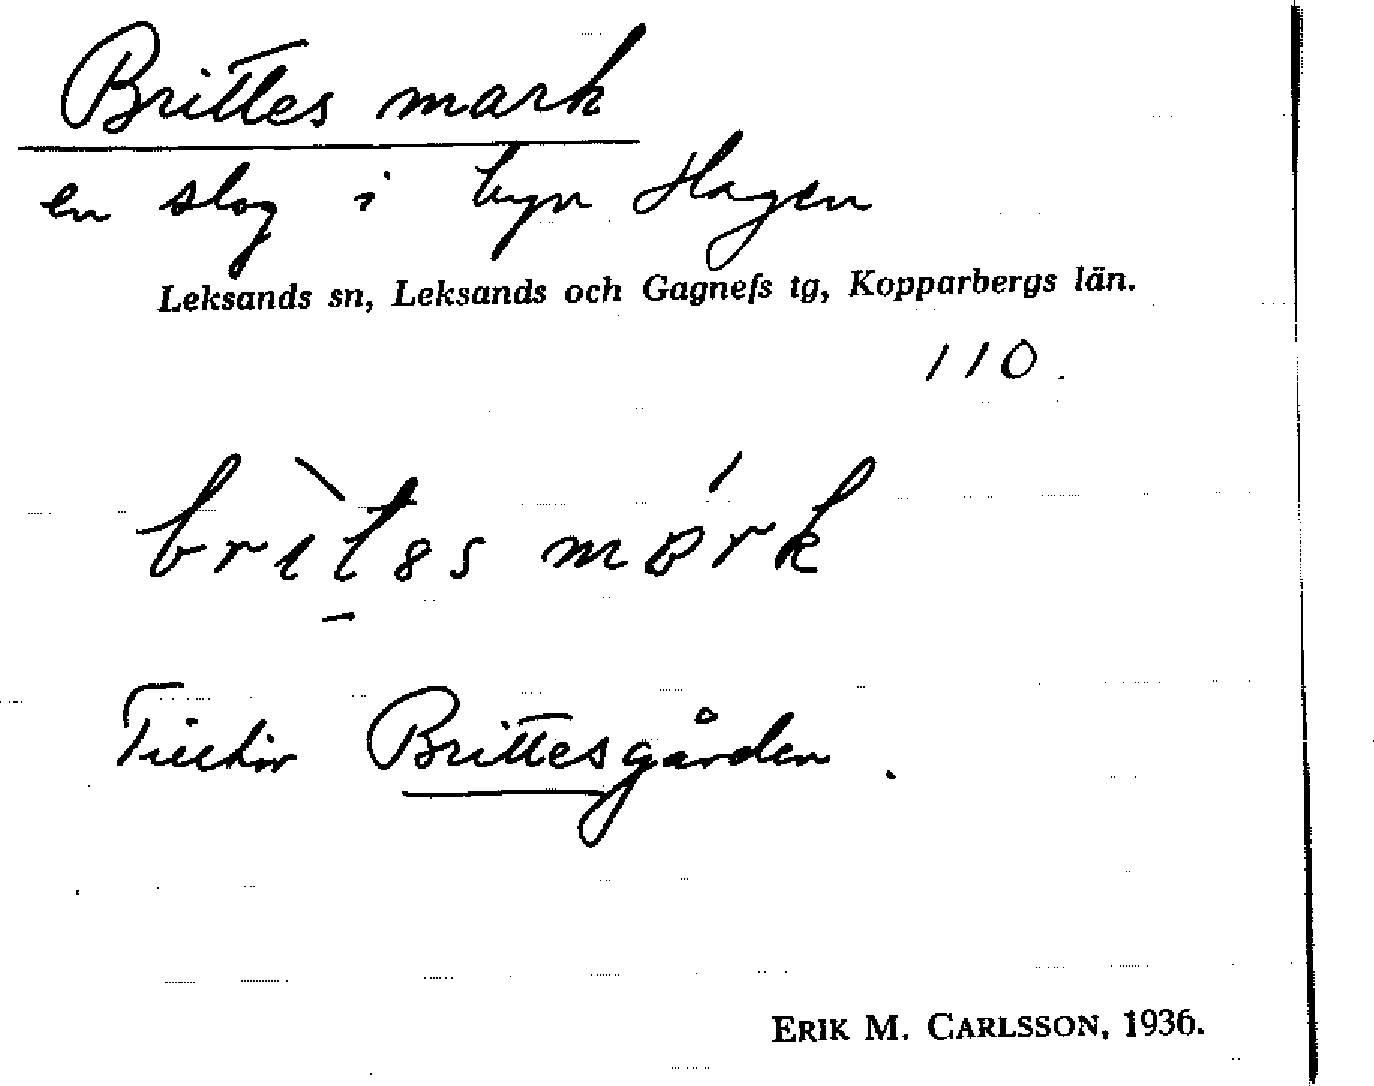 Brittes mark
en slog i byn Hagen
Leksands sn, Leksands och Gagnefs tg, Kopparbergs län.
110.
brìtes mårk
Tillhör Brittesgården.
ERIK M. CARLSSON, 1936.